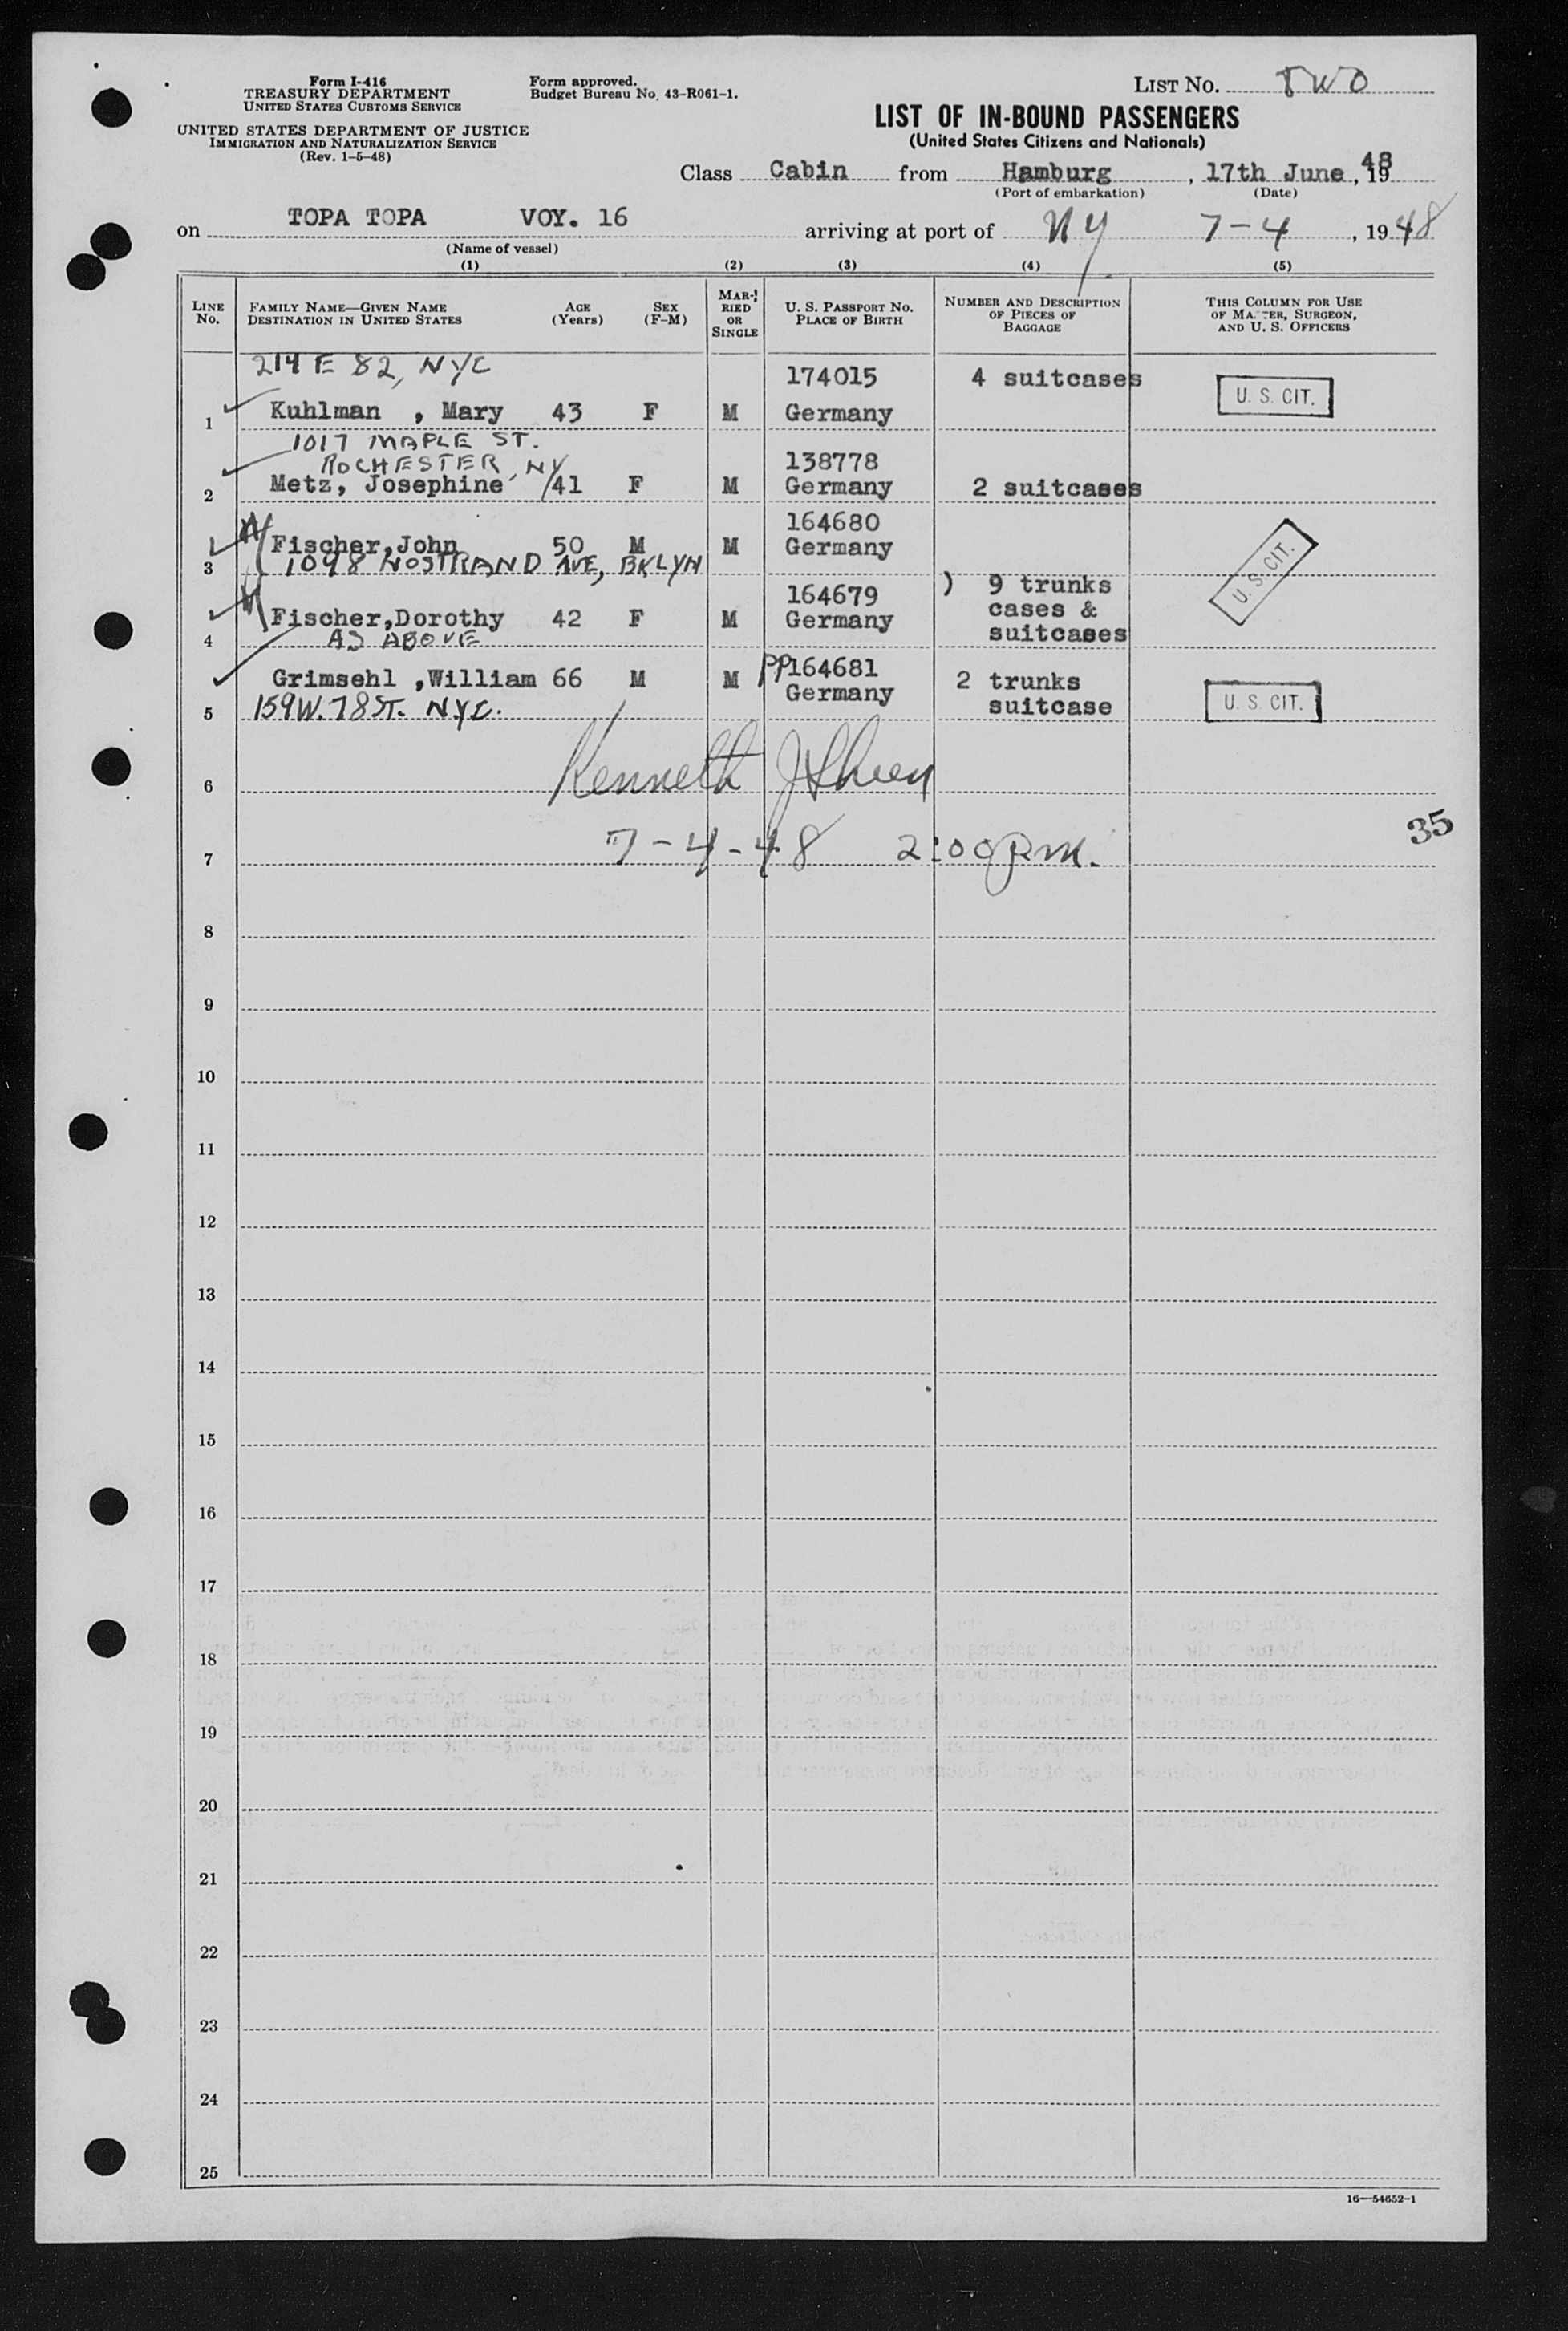 Form I-416
TREASURY DEPARTMENT
UNITED STATES CUSTOMS SERVICE
UNITED STATES DEPARTMENT OF JUSTICE
IMMIGRATION AND NATURALIZATION SERVICE
(Rev. 1-5-48)
Form approved.
Budget Bureau No. 43-R061-1.
LIST No. TWO
LIST OF IN-BOUND PASSENGERS
(United States Citizens and Nationals)
Class Cabin from Hamburg, 17th June, 1948
(Port of embarkation) (Date)
on TOPA TOPA VOY. 16 arriving at port of NY 7-4, 1948
(Name of vessel)
(1) (2) (3) (4) (5)
LINE No. FAMILY NAME—GIVEN NAME DESTINATION IN UNITED STATES AGE (Years) SEX (F-M) MARRIED OR SINGLE U. S. PASSPORT No. PLACE OF BIRTH NUMBER AND DESCRIPTION OF PIECES OF BAGGAGE THIS COLUMN FOR USE OF MASTER, SURGEON, AND U. S. OFFICERS
214 E 82, NYC 174015 4 suitcases U. S. CIT.
1 Kuhlman , Mary 43 F M Germany
1017 MAPLE ST.
ROCHESTER, NY 138778
2 Metz, Josephine 41 F M Germany 2 suitcases
164680
3 Fischer,John 50 M M Germany U. S. CIT.
1098 NOSTRAND AVE, BKLYN
164679 ) 9 trunks
4 Fischer,Dorothy 42 F M Germany cases &
AS ABOVE suitcases
Grimsehl ,William 66 M M PP164681 2 trunks
5 159 W. 78 ST. NYC. Germany suitcase U. S. CIT.
6 Kenneth
7 7-4-48 2:00 PM.
35
8
9
10
11
12
13
14
15
16
17
18
19
20
21
22
23
24
25
16—54652-1